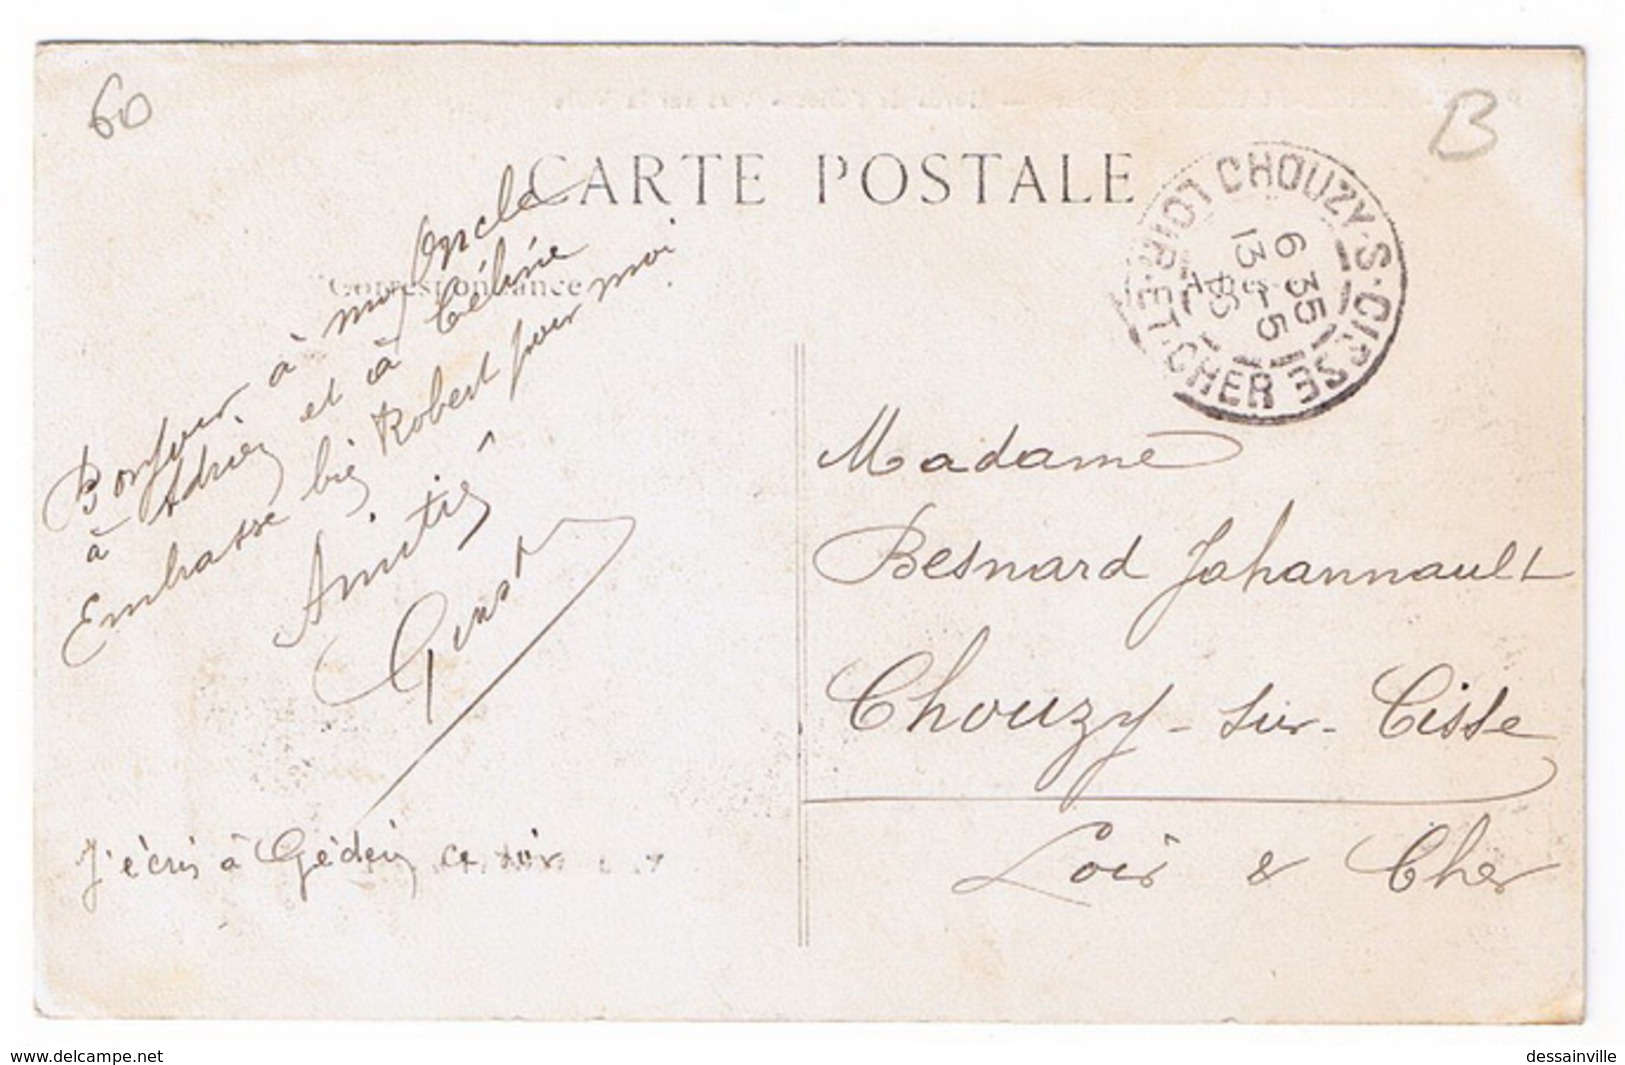 60
B
CARTE POSTALE
Correspondance
CHOUZY-S-CISSE
LOIR-ET-CHER
6 35
13 - 5
Bonjour à mon Oncle
à Adrien et à Céline
Embrasse bien Robert pour moi
Amitiés
J'écris à Gédéon ce soir
Madame
Besnard Johannault
Chouzy-sur-Cisse
Loir & Cher
www.delcampe.net
dessainville